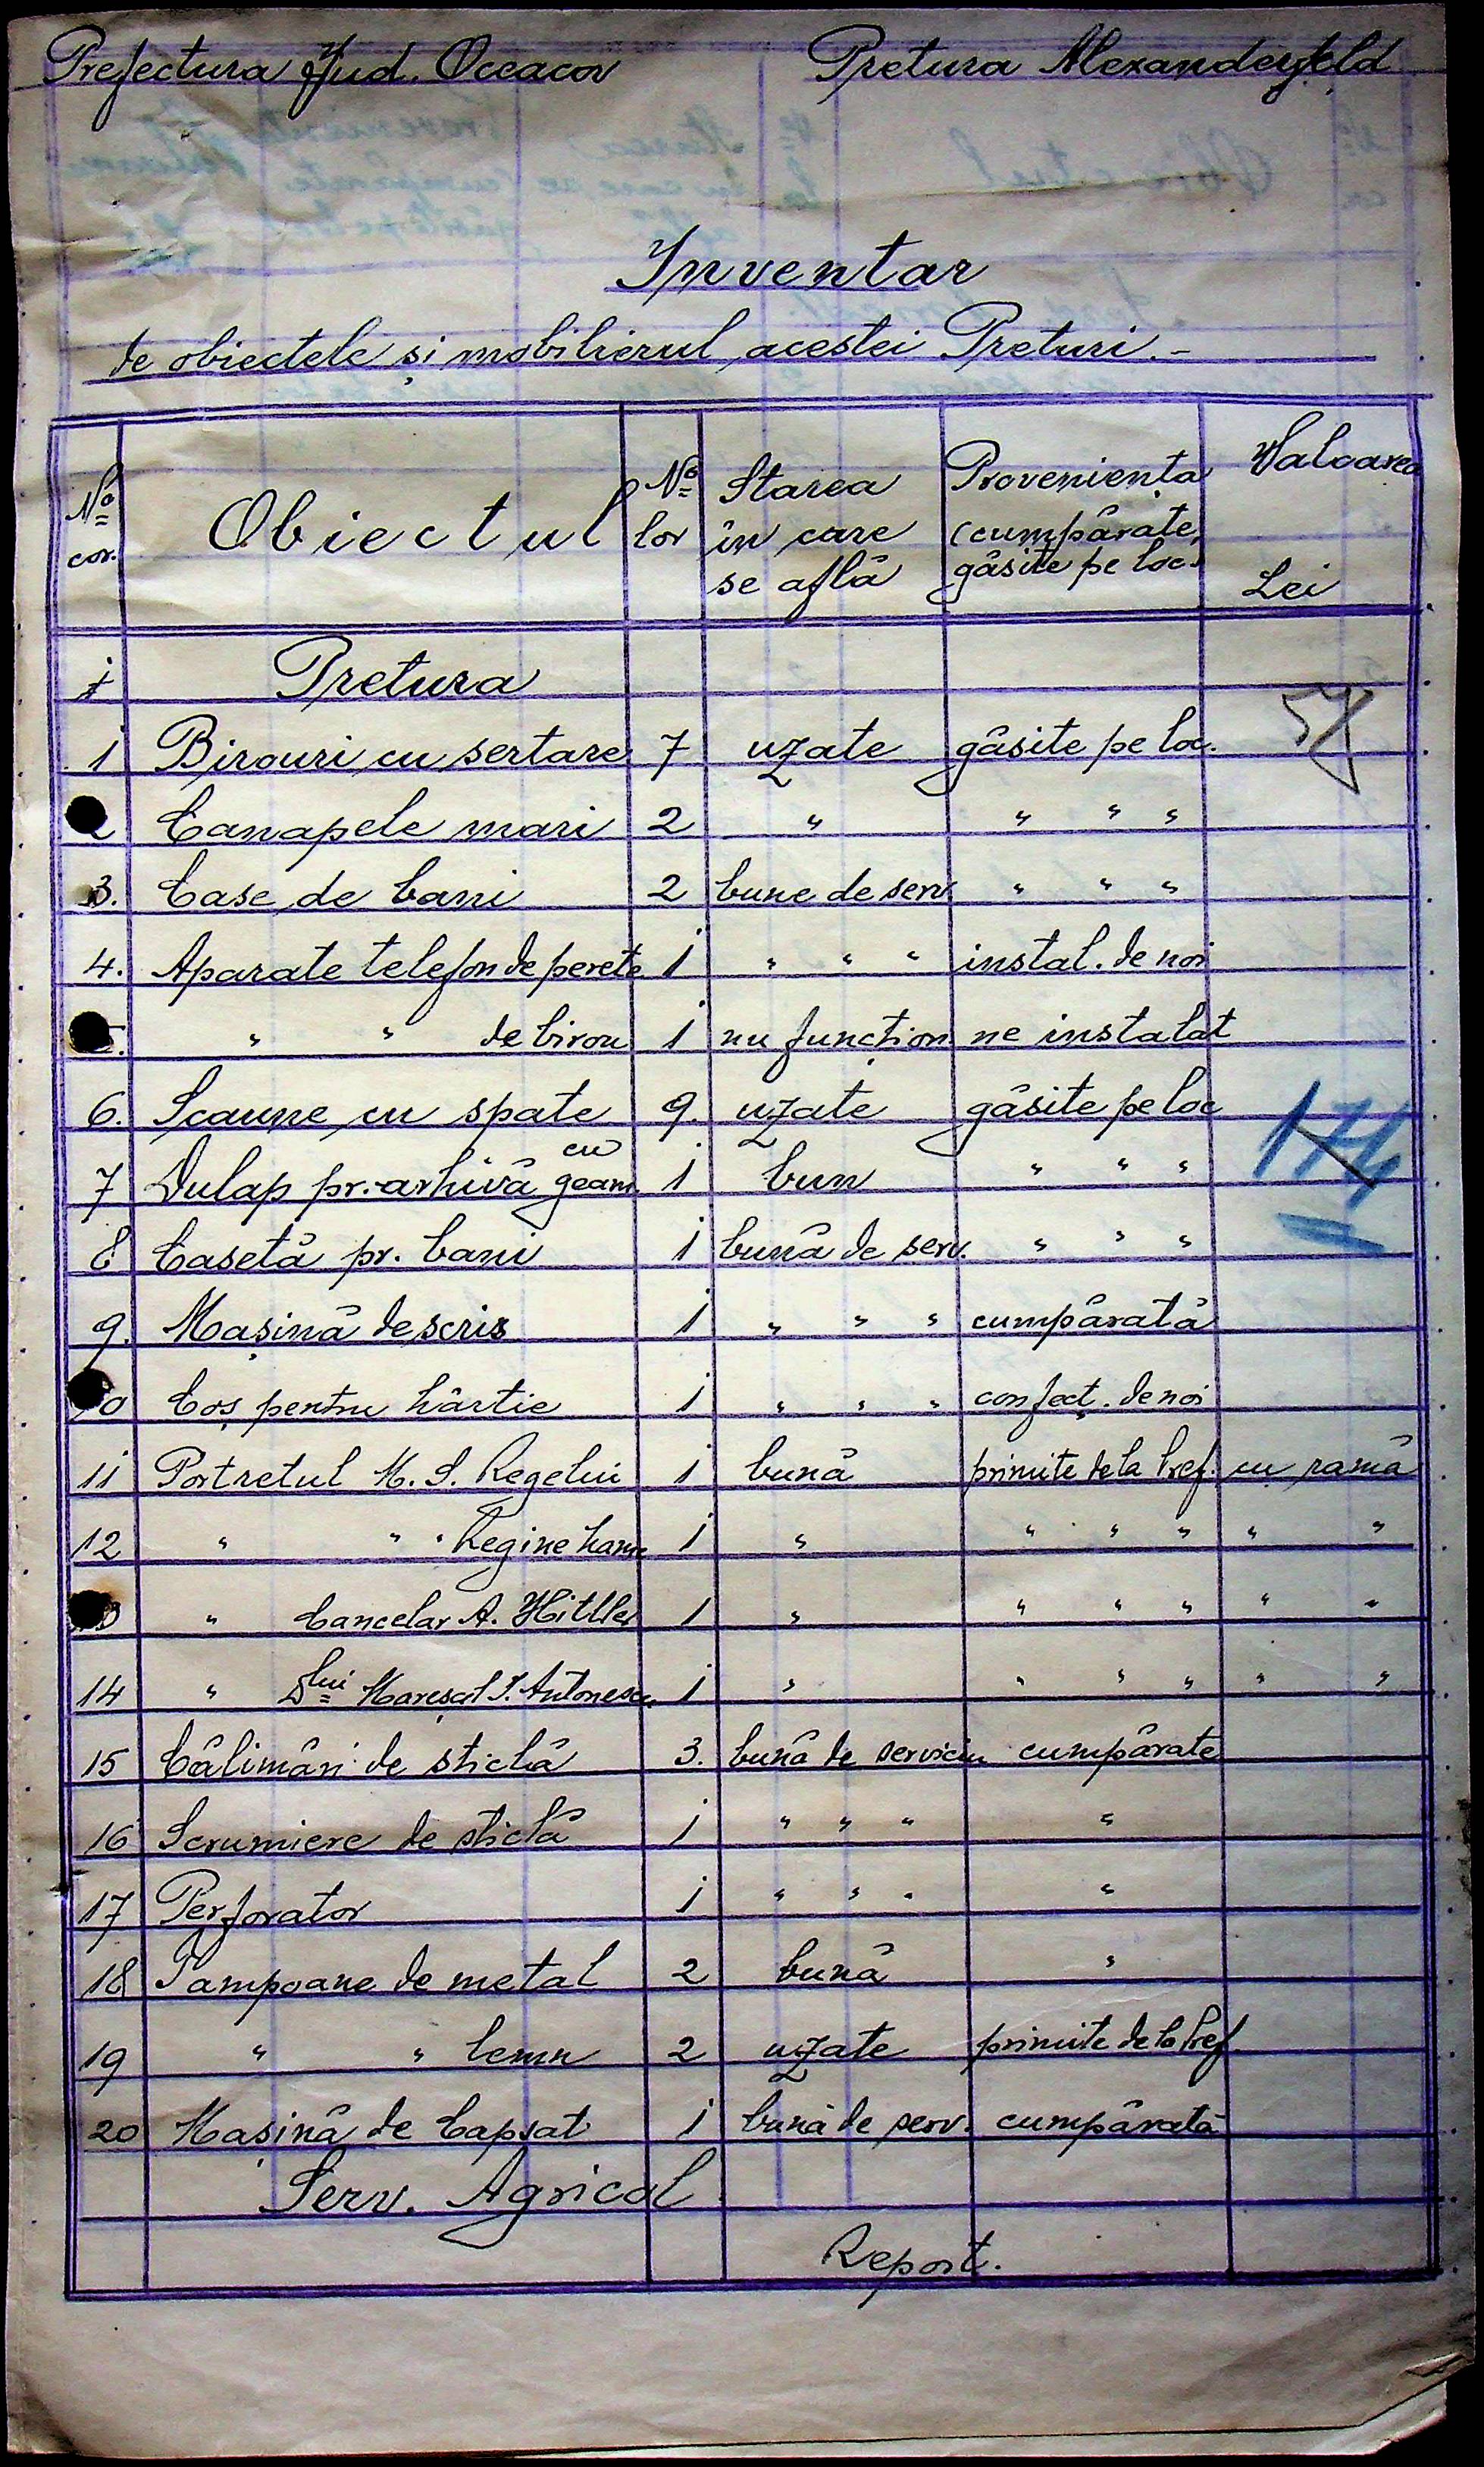 Prefectura Jud. Oceacov Pretura Alexanderfeld
Inventar
de obiectele și mobilierul acestei Preturi.-
No cor. Obiectul No lor Starea în care se află Proveniența (cumpărate, găsite pe loc) Valoarea Lei
Pretura
57
1 Birouri cu sertare 7 uzate găsite pe loc.
2 Canapele mari 2 " " " "
3. Case de bani 2 bune de serv. " " "
4. Aparate telefon de perete 1 " " " instal. de noi
5. " " de birou 1 nu funcțion ne instalat
6. Scaune cu spate 9. uzate găsite pe loc
174
7 Dulap pr. arhivă cu geam 1 bun " " "
8 Casetă pr. bani 1 bună de serv. " " "
9. Mașină de scris 1 " " " cumpărată
10 Coș pentru hârtie 1 " " " confect. de noi
11 Portretul M. S. Regelui 1 bună primite de la Pref. cu ramă
12 " " " Regine 1 " " " " " "
13 " Cancelar A. Hittler 1 " " " " " "
14 " Dlui Mareșal I. Antonescu 1 " " " " " "
15 Călimări de sticlă 3. bună de serviciu cumpărate
16 Scrumiere de sticlă 1 " " " "
17 Perforator 1 " " " "
18 Tampoane de metal 2 bună "
19 " " lemn 2 uzate primite de la Pref.
20 Mașină de capsat 1 bună de serv. cumpărată
Serv. Agricol
Report.